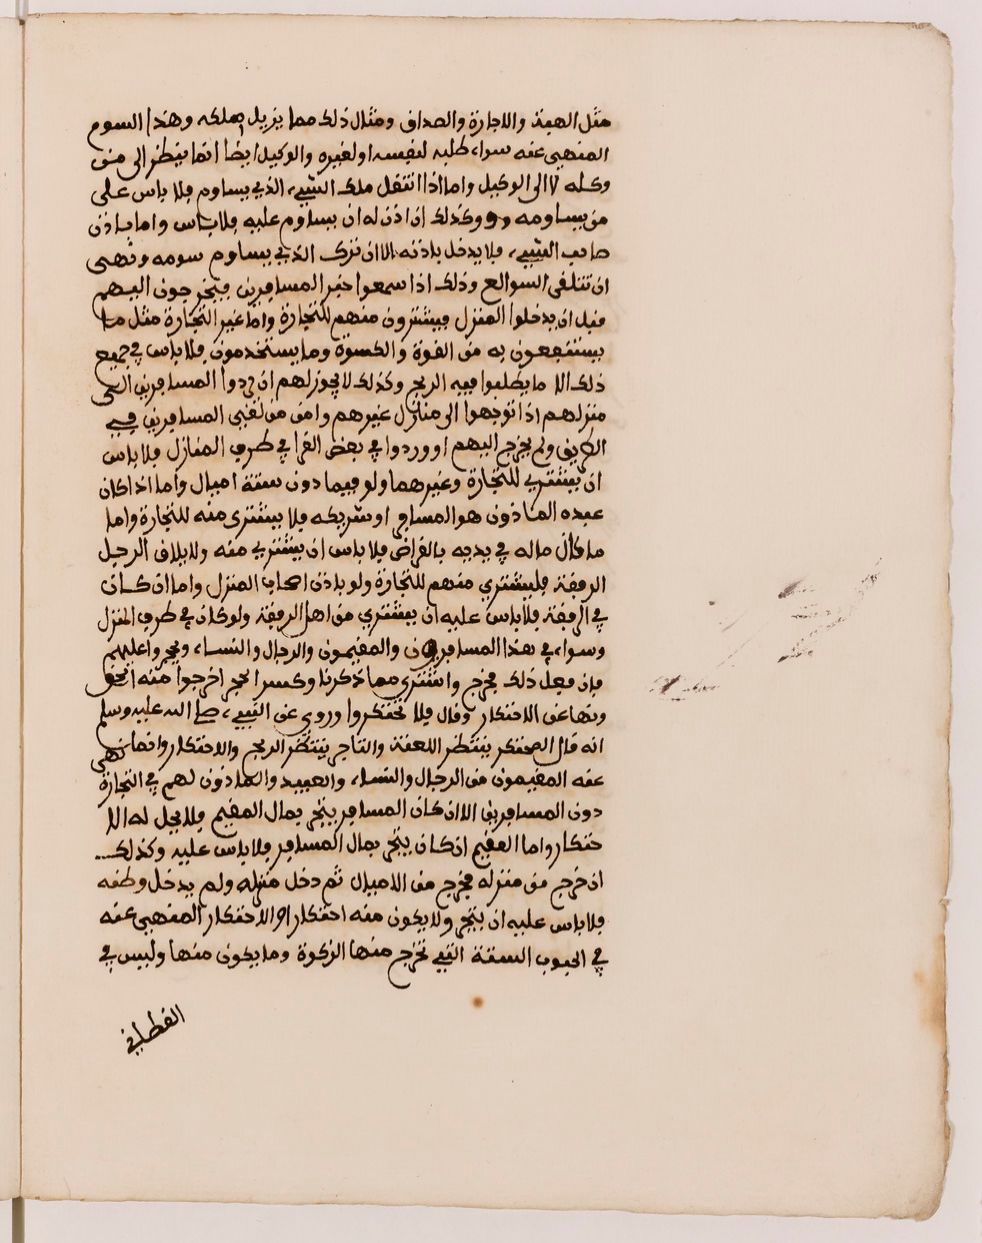 مثل الهبة والاجارة والصداق ومثال ذلك مما يزيل بملكه وهذا السوم
المنهي عنه سواء طلبه لنفسه او لغيره والوكيل ايضا انما ينظر الى من
وكله لا الى الوكيل واما اذا انتقل ملك الشيء الذي يساوم فلا باس على
من يساومه وكذلك ان اذن له ان يساوم عليه فلا باس واما باذن
صاحب الشيء فلا يدخل باذنه الا ان ترك الذي يساوم سومه ونهى
ان تتلقى السوالع وذلك اذا سمعوا خبر المسافرين فيخرجون اليهم
قبل ان يدخلوا المنزل فيشترون منهم للتجارة واما غير التجارة مثل ما
يستنفعون به من القوة والكسوة وما يستخدمون فلا باس في جميع
ذلك الا ما يطلبوا فيه الربح وكذلك لا يجوز لهم ان يردوا المسافرين الى
منزلهم اذا توجهوا الى منازل غيرهم وامن من لقي المسافرين في
الطريق ولم يخرج اليهم او وردوا في بعض القرا في طرف المنازل فلا باس
ان يشتري للتجارة وغيرهما ولو فيما دون ستة اميال واما اذا كان
عبده الماذون هو المسافر او شريكه فلا يشترى منه للتجارة واما
ما كان ماله في يديه بالقراض فلا باس ان يشتري منه ولا يلاق الرجل
الرفقة فليشتري منهم للتجارة ولو باذن اصحاب المنزل واما ان كان
في الرفقة فلا باس عليه ان يشتري من اهل الرفقة ولو كان في طرف المنزل
وسواء في هذا المسافرون والمقيمون والرجال والنساء وفجروا عليهم
فان فعل ذلك فخرج واشتري مما ذكرنا وكسرا الحجر اخرجوا منه الحق
ونها عن الاحتكار وقال فلا تحتكروا وروي عن النبيء صلى الله عليه وسلم
انه قال المحتكر ينتظر اللعنة والتاجر ينتظر الربح والاحتكار وانما نهى
عنه المقيمون من الرجال والنساء والعبيد والماذون لهم في التجارة
دون المسافرين الا ان كان المسافر يتجر بمال المقيم فلا يحل له الا
حتكار واما المقيم ان كان يتجر بمال المسافر فلا باس عليه وكذلك
ان خرج من منزله فخرج من الاميال ثم دخل منزله ولم يدخل وطنه
فلا باس عليه ان يتجر ولا يكون منه احتكار او الاحتكار المنهي عنه
في الحبوب الستة التي تخرج منها الزكوة وما يكون منها وليس في
القطاني